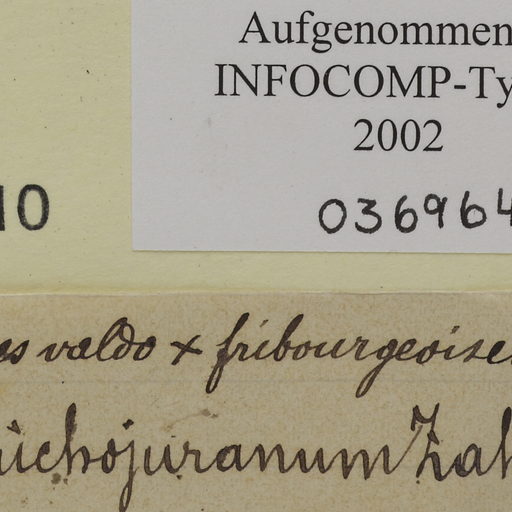 Aufgenommen
INFOCOMP-Ty
2002
10
036964
es valdo × fribourgeoise
uchojuranum Zah